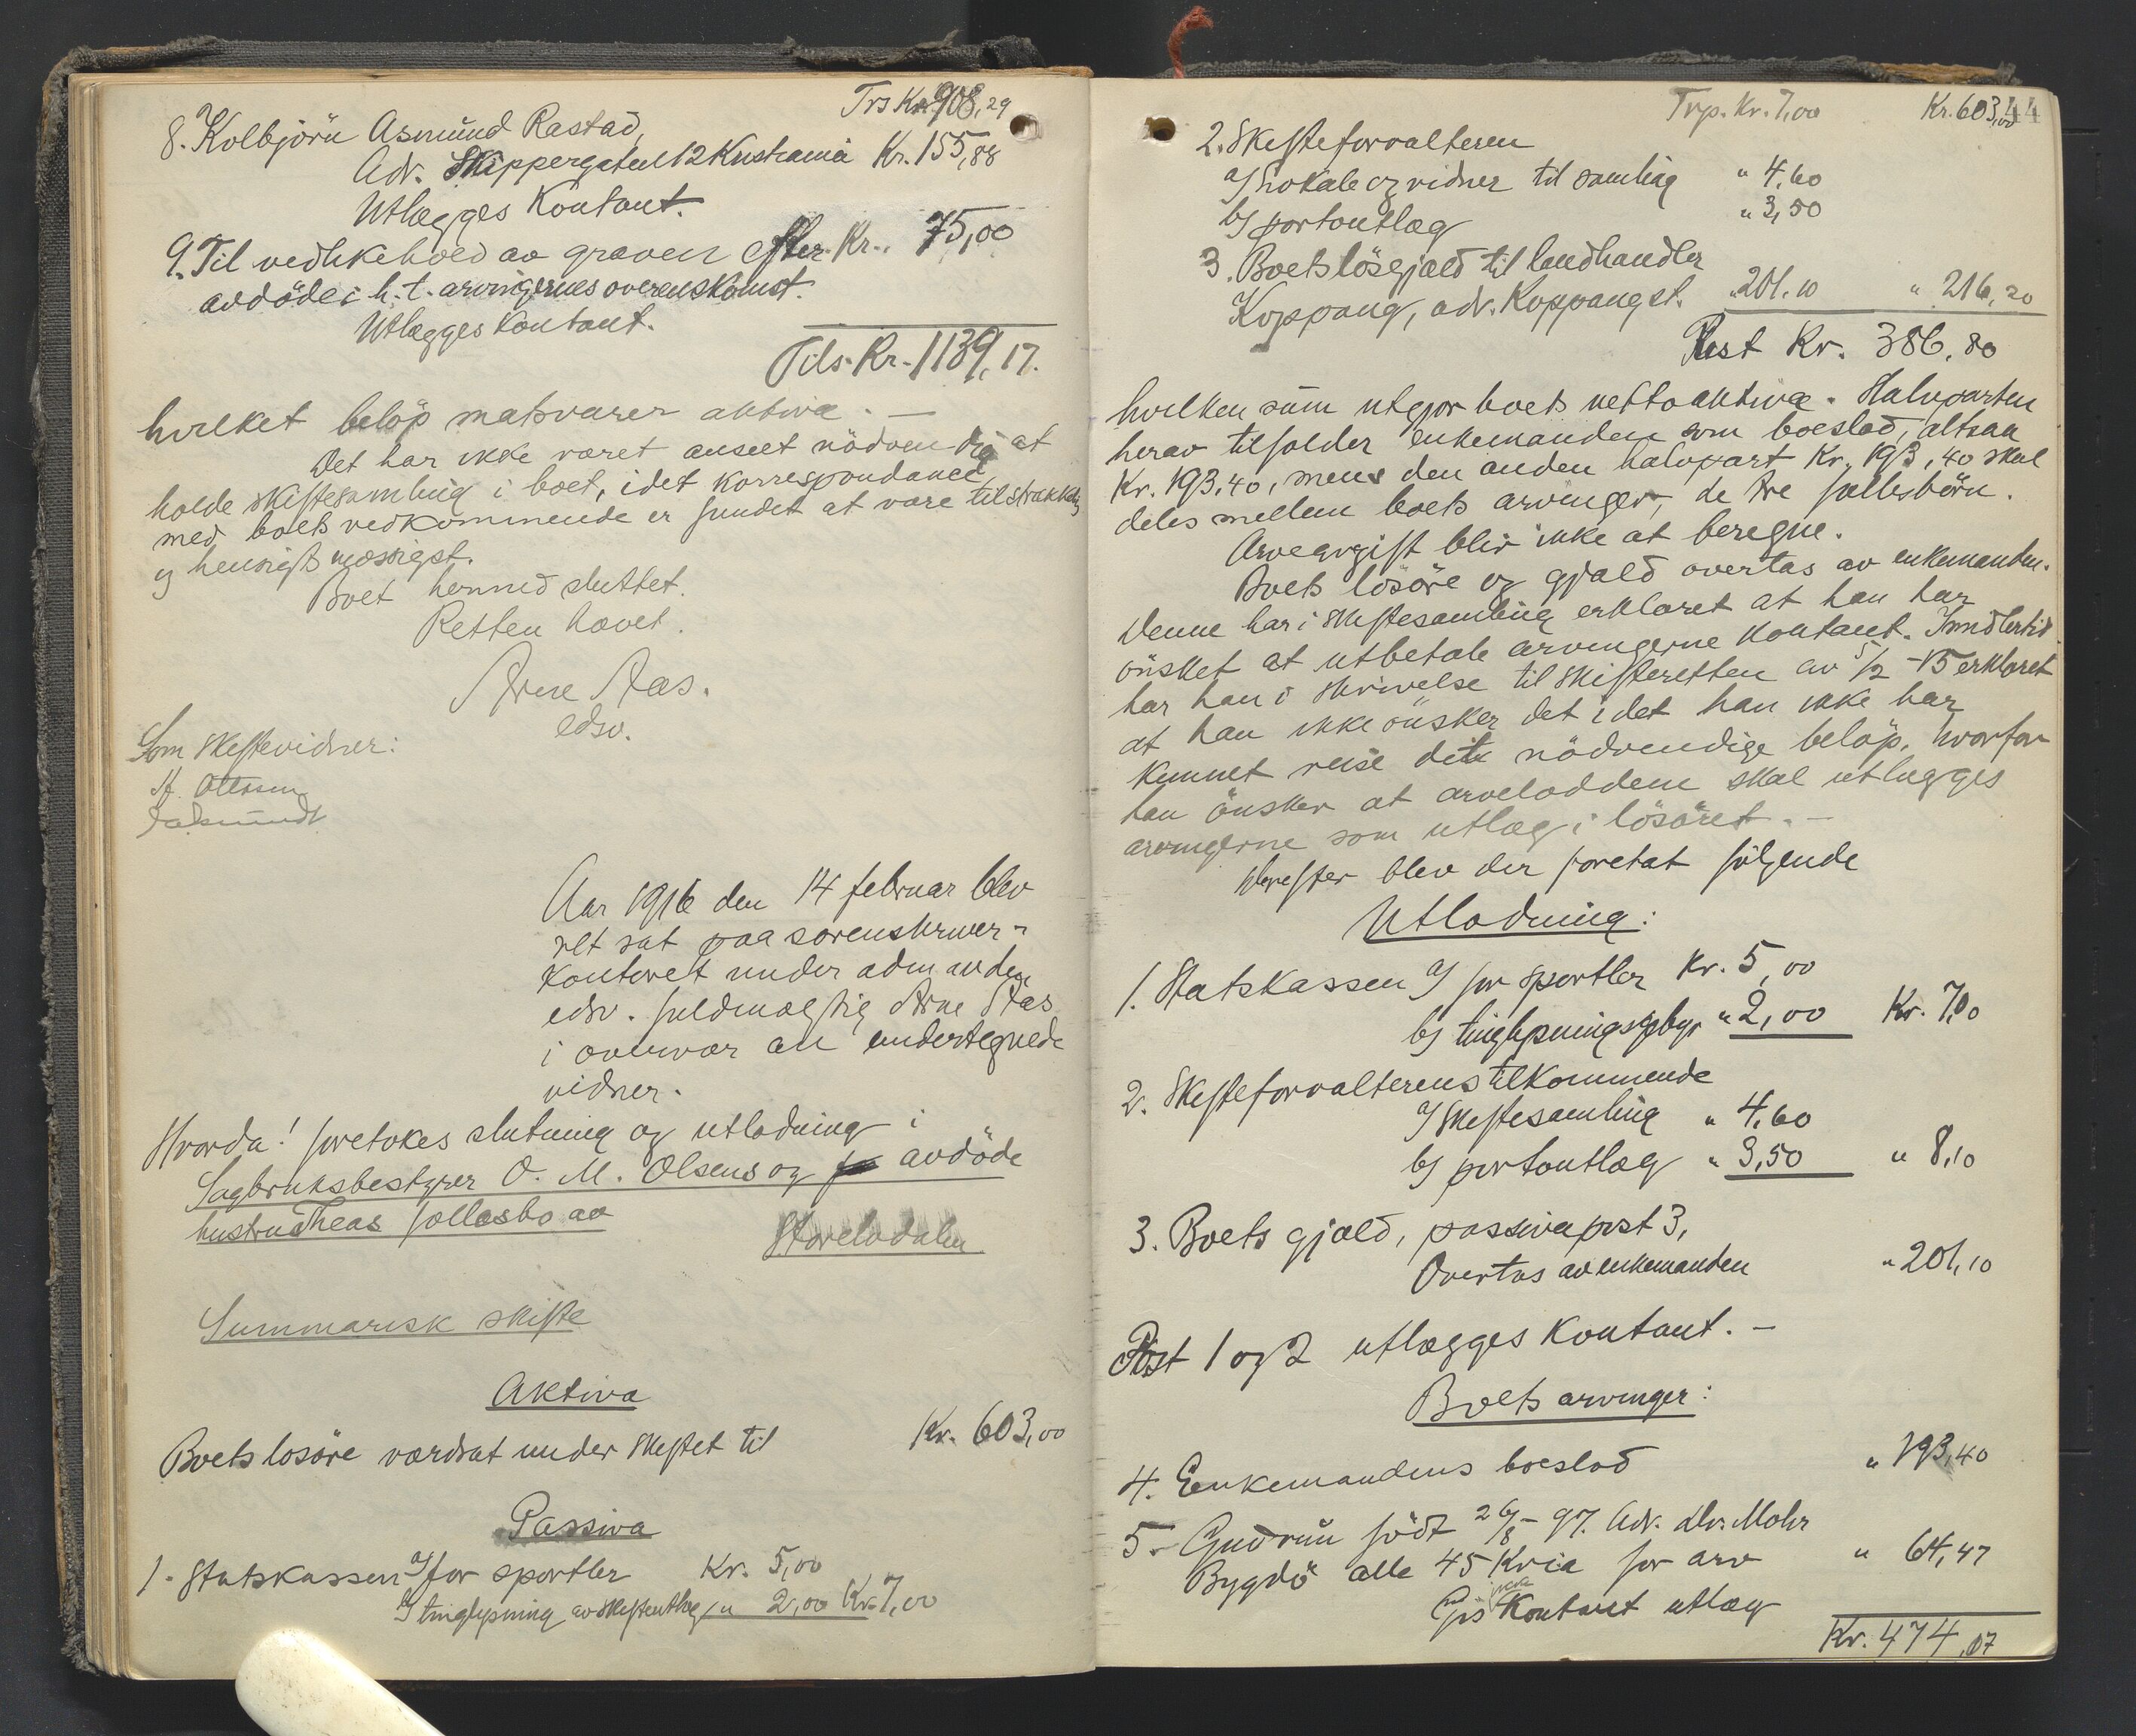 Trs Kr. 908,29
8. Kolbjörn Asmund Rastad,
Adr. Skippergaten 12 Kristiania Kr. 155,88
Utlægges Kontant.
9. Til vedlikehold av graven efter Kr. 75,00
avdöde i h. t. arvingernes overenskomst.
Utlægges Kontant.
Tils. Kr. 1139,17.
hvilket belöp motsvarer aktiva. —
Det har ikke været anseet nödvendig at
holde skiftesamling i boet, idet korrespondance
med boets vedkommende er fundet at være tilstrækkelig
og hensigtsmæssigst.
Boet hermed sluttet.
Retten hævet.
Arne Aas.
edsv.
Som skiftevidner:
Aar 1916 den 14 februar blev
ret sat paa sorenskriver-
kontoret under adm av den
edsv. fuldmægtig Arne Aas
i overvær av undertegnede
vidner.
Hvorda! foretokes slutning og utlodning i
Sagbruksbestyrer O. M. Olsens og avdöde
hustru Theas fællesbo av
Storelvdalen
Summarisk skifte
Aktiva
Boets lösöre værdsat under skiftet til Kr. 603,00
Passiva
1. Statskassen a/ for sportler Kr. 5,00
b/ tinglysning av skifteutlæg " 2,00 Kr. 7,00
Trp. Kr. 7,00 Kr. 603,00 44
2. Skifteforvalteren
a/ Lokale og vidner til samling " 4,60
b/ portoutlæg " 3,50
3. Boets lösegjæld til landhandler
Koppang, adr. Koppang st. " 201,10 " 216,20
Rest Kr. 386,80
hvilken sum utgjør boets nettoaktiva. Halvparten
herav tilfalder enkemanden som boeslod, altsaa
Kr. 193,40, mens den anden halvpart Kr. 193,40 skal
deles mellem boets arvinger, de tre fællesbörn.
Arveavgift blir ikke at beregne.
Boets lösöre og gjæld overtas av enkemanden.
Denne har i skiftesamling erklæret at han har
önsket at utbetale arvingerne kontant. Imidlertid
har han i skrivelse til skifteretten av 5/2 - 15 erklæret
at han ikke önsker det idet han ikke har
kunnet reise det nödvendige belöp, hvorfor
han önsker at arveloddene skal utlægges
arvingerne som utlæg i lösöret. —
Derefter blev der foretat fölgende
Utlodning:
1. Statskassen a/ for sportler Kr. 5,00
b/ tinglysningsgebyr " 2,00 Kr. 7,00
2. Skifteforvalterens tilkommende
a/ Skiftesamling " 4,60
b/ portoutlæg " 3,50 " 8,10
3. Boets gjæld, passiva post 3,
Overtas av enkemanden " 201,10
Post 1 og 2 utlægges Kontant. —
Boets arvinger:
4. Enkemandens boeslod " 193,40
5. Gudrun födt 26/8 - 97. Adr. Dr. Mohr
Bygdö alle 45 Kria for arv " 64,47
Gis Kontant utlæg
Kr. 474,07